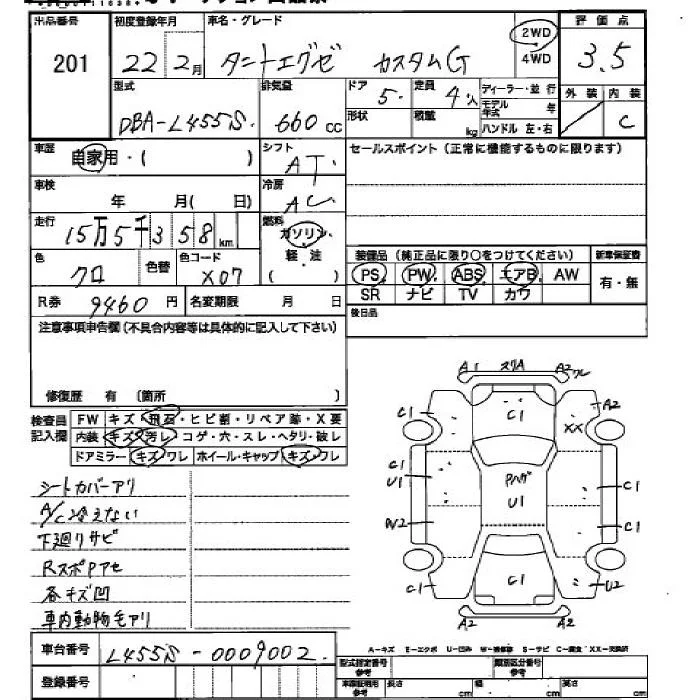 出品番号 初度登録年月 車名・グレード 評価点
201 22年2月 タントエグゼ カスタムG 2WD 4WD 3.5
型式 排気量 ドア 定員 ディーラー・並行 外装 内装
DBA-L455S 660cc 5 4人 モデル年式 年 C
形状 積載 kg ハンドル 左・右
車歴 自家用・( ) シフト AT セールスポイント(正常に機能するものに限ります)
車検 年 月( 日) 冷房 AC
走行 15万5千358km 燃料 ガソリン 軽・油 ( )
色 クロ 色替 色コード X07
装備品(純正品に限り○をつけてください) 新車保証書
PS PW ABS エアB AW 有・無
SR ナビ TV カワ
R券 9460円 名変期限 月 日 後日品
注意事項申告欄(不具合内容等は具体的に記入して下さい)
修復歴 有 〔箇所 〕
検査員記入欄
FW キズ・飛石・ヒビ割・リペア跡・X要
内装 キズ・汚レ・コゲ・穴・スレ・ヘタリ・破レ
ドアミラー キズ・ワレ ホイール・キャップ キズ・ワレ
シートカバーアリ
A/C冷えない
下廻りサビ
RスポPアセ
各キズ凹
車内動物毛アリ
A1 スリA A2 ワレ
C1 C1 A2
XX
C1 U1 Pハゲ U1 C1
W2 C1
C1 C1 U2
A2 A2
A-キズ E-エクボ U-凹み W-補修跡 S-サビ C-腐食 XX-交換済
車台番号 L455S-0009002
登録番号
型式指定番号 参考 類別区分番号 参考
車車証明用 参考 長さ cm 幅 cm 高さ cm